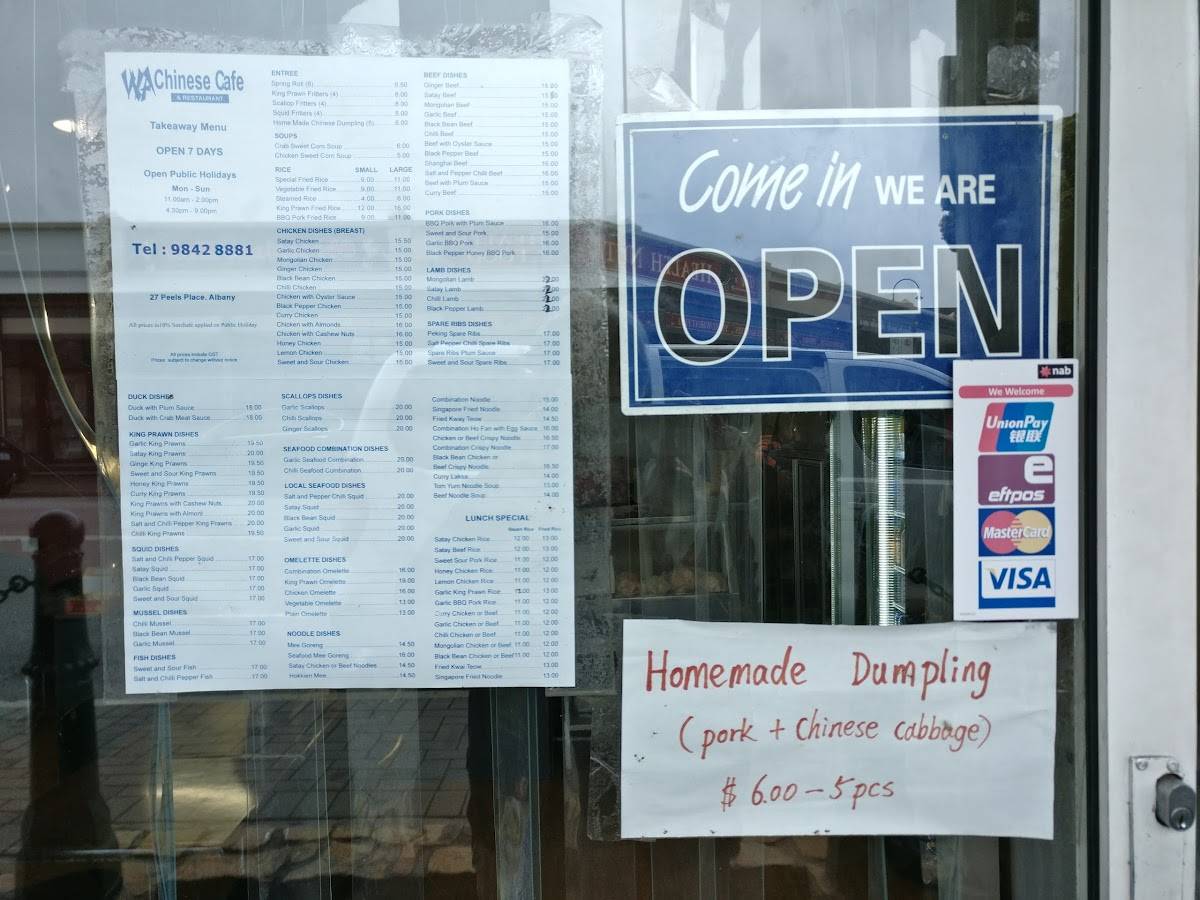 WA Chinese Cafe
& RESTAURANT
Takeaway Menu
OPEN 7 DAYS
Open Public Holidays
Mon - Sun
11.00am - 2.00pm
4.30pm - 9.00pm
Tel : 9842 8881
27 Peels Place, Albany
All prices include GST
Prices subject to change without notice
ENTREE
Spring Roll (6) 6.50
King Prawn Fritters (4) 8.00
Scallop Fritters (4) 8.00
Squid Fritters (4)
Home Made Chinese Dumpling (5) 6.00
SOUPS
Crab Sweet Corn Soup 6.00
Chicken Sweet Corn Soup 5.00
RICE SMALL LARGE
Special Fried Rice 9.00 11.00
Vegetable Fried Rice 9.00 11.00
Steamed Rice 4.00 6.00
King Prawn Fried Rice 12.00 16.00
BBQ Pork Fried Rice 9.00 11.00
CHICKEN DISHES (BREAST)
Satay Chicken 15.50
Garlic Chicken 15.00
Mongolian Chicken 15.00
Ginger Chicken 15.00
Black Bean Chicken 15.00
Chilli Chicken 15.00
Chicken with Oyster Sauce 15.00
Black Pepper Chicken 16.00
Curry Chicken 15.00
Chicken with Almonds 16.00
Chicken with Cashew Nuts 16.00
Honey Chicken 15.00
Lemon Chicken 15.00
Sweet and Sour Chicken 15.00
BEEF DISHES
Ginger Beef 15.00
Satay Beef
Mongolian Beef 15.00
Garlic Beef 15.00
Black Bean Beef 15.00
Chilli Beef 15.00
Beef with Oyster Sauce 15.00
Black Pepper Beef 15.00
Shanghai Beef 15.00
Salt and Pepper Chilli Beef 16.00
Beef with Plum Sauce 15.00
Curry Beef 15.00
PORK DISHES
BBQ Pork with Plum Sauce 16.00
Sweet and Sour Pork 15.00
Garlic BBQ Pork 16.00
Black Pepper Honey BBQ Pork 16.00
LAMB DISHES
Mongolian Lamb
Satay Lamb
Chilli Lamb
Black Pepper Lamb
SPARE RIBS DISHES
Peking Spare Ribs 17.00
Salt Pepper Chilli Spare Ribs 17.00
Spare Ribs Plum Sauce 17.00
Sweet and Sour Spare Ribs 17.00
DUCK DISHES
Duck with Plum Sauce 18.00
Duck with Crab Meat Sauce 18.00
KING PRAWN DISHES
Garlic King Prawns 19.50
Satay King Prawns 20.00
Ginge King Prawns 19.50
Sweet and Sour King Prawns 19.50
Honey King Prawns 19.50
Curry King Prawns 19.50
King Prawns with Cashew Nuts 20.00
King Prawns with Almont 20.00
Salt and Chilli Pepper King Prawns 20.00
Chilli King Prawns 19.50
SQUID DISHES
Salt and Chilli Pepper Squid 17.00
Satay Squid 17.00
Black Bean Squid 17.00
Garlic Squid 17.00
Sweet and Sour Squid 17.00
MUSSEL DISHES
Chilli Mussel 17.00
Black Bean Mussel 17.00
Garlic Mussel 17.00
FISH DISHES
Sweet and Sour Fish 17.00
Salt and Chilli Pepper Fish 17.00
SCALLOPS DISHES
Garlic Scallops 20.00
Chilli Scallops 20.00
Ginger Scallops 20.00
SEAFOOD COMBINATION DISHES
Garlic Seafood Combination 20.00
Chilli Seafood Combination 20.00
LOCAL SEAFOOD DISHES
Salt and Pepper Chilli Squid 20.00
Satay Squid 20.00
Black Bean Squid 20.00
Garlic Squid 20.00
Sweet and Sour Squid 20.00
OMELETTE DISHES
Combination Omelette 16.00
King Prawn Omelette 19.00
Chicken Omelette 16.00
Vegetable Omelette 13.00
Plain Omelette 13.00
NOODLE DISHES
Mee Goreng 14.50
Seafood Mee Goreng 16.00
Satay Chicken or Beef Noodles 14.50
Hokkien Mee 14.50
Combination Noodle 15.00
Singapore Fried Noodle 14.00
Fried Kway Teow 14.50
Combination Ho Fan with Egg Sauce 16.00
Chicken or Beef Crispy Noodle 16.50
Combination Crispy Noodle 17.00
Black Bean Chicken or
Beef Crispy Noodle 16.50
Curry Laksa 14.00
Tom Yum Noodle Soup
Beef Noodle Soup 14.00
LUNCH SPECIAL
Steam Rice Fried Rice
Satay Chicken Rice 12.00 13.00
Satay Beef Rice 12.00 13.00
Sweet Sour Pork Rice 11.00 12.00
Honey Chicken Rice 11.00 12.00
Lemon Chicken Rice 11.00 12.00
Garlic King Prawn Rice 13.00
Garlic BBQ Pork Rice 11.00 12.00
Curry Chicken or Beef 11.00 12.00
Garlic Chicken or Beef 11.00 12.00
Chilli Chicken or Beef 11.00 12.00
Mongolian Chicken or Beef 11.00 12.00
Black Bean Chicken or Beef 11.00 12.00
Fried Kwai Teow 13.00
Singapore Fried Noodle 13.00
Come in WE ARE
OPEN
nab
We Welcome
UnionPay
银联
e
eftpos
MasterCard
VISA
Homemade Dumpling
(pork + Chinese cabbage)
$ 6.00 - 5 pcs